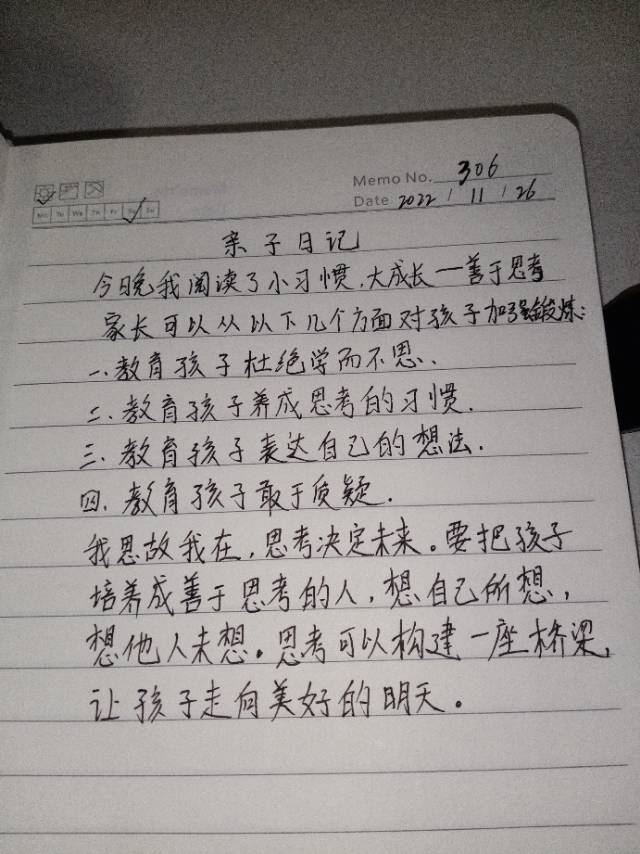 Memo No. 306
Mo Tu We Th Fr Sa Su
Date 2022 / 11 / 26
亲子日记
今晚我阅读了小习惯.大成长一善于思考
家长可以从以下几个方面对孩子加强锻炼:
一、教育孩子杜绝学而不思.
二、教育孩子养成思考的习惯.
三、教育孩子表达自己的想法.
四、教育孩子敢于质疑.
我思故我在,思考决定未来。要把孩子
培养成善于思考的人,想自己所想,
想他人未想。思考可以构建一座桥梁,
让孩子走向美好的明天。